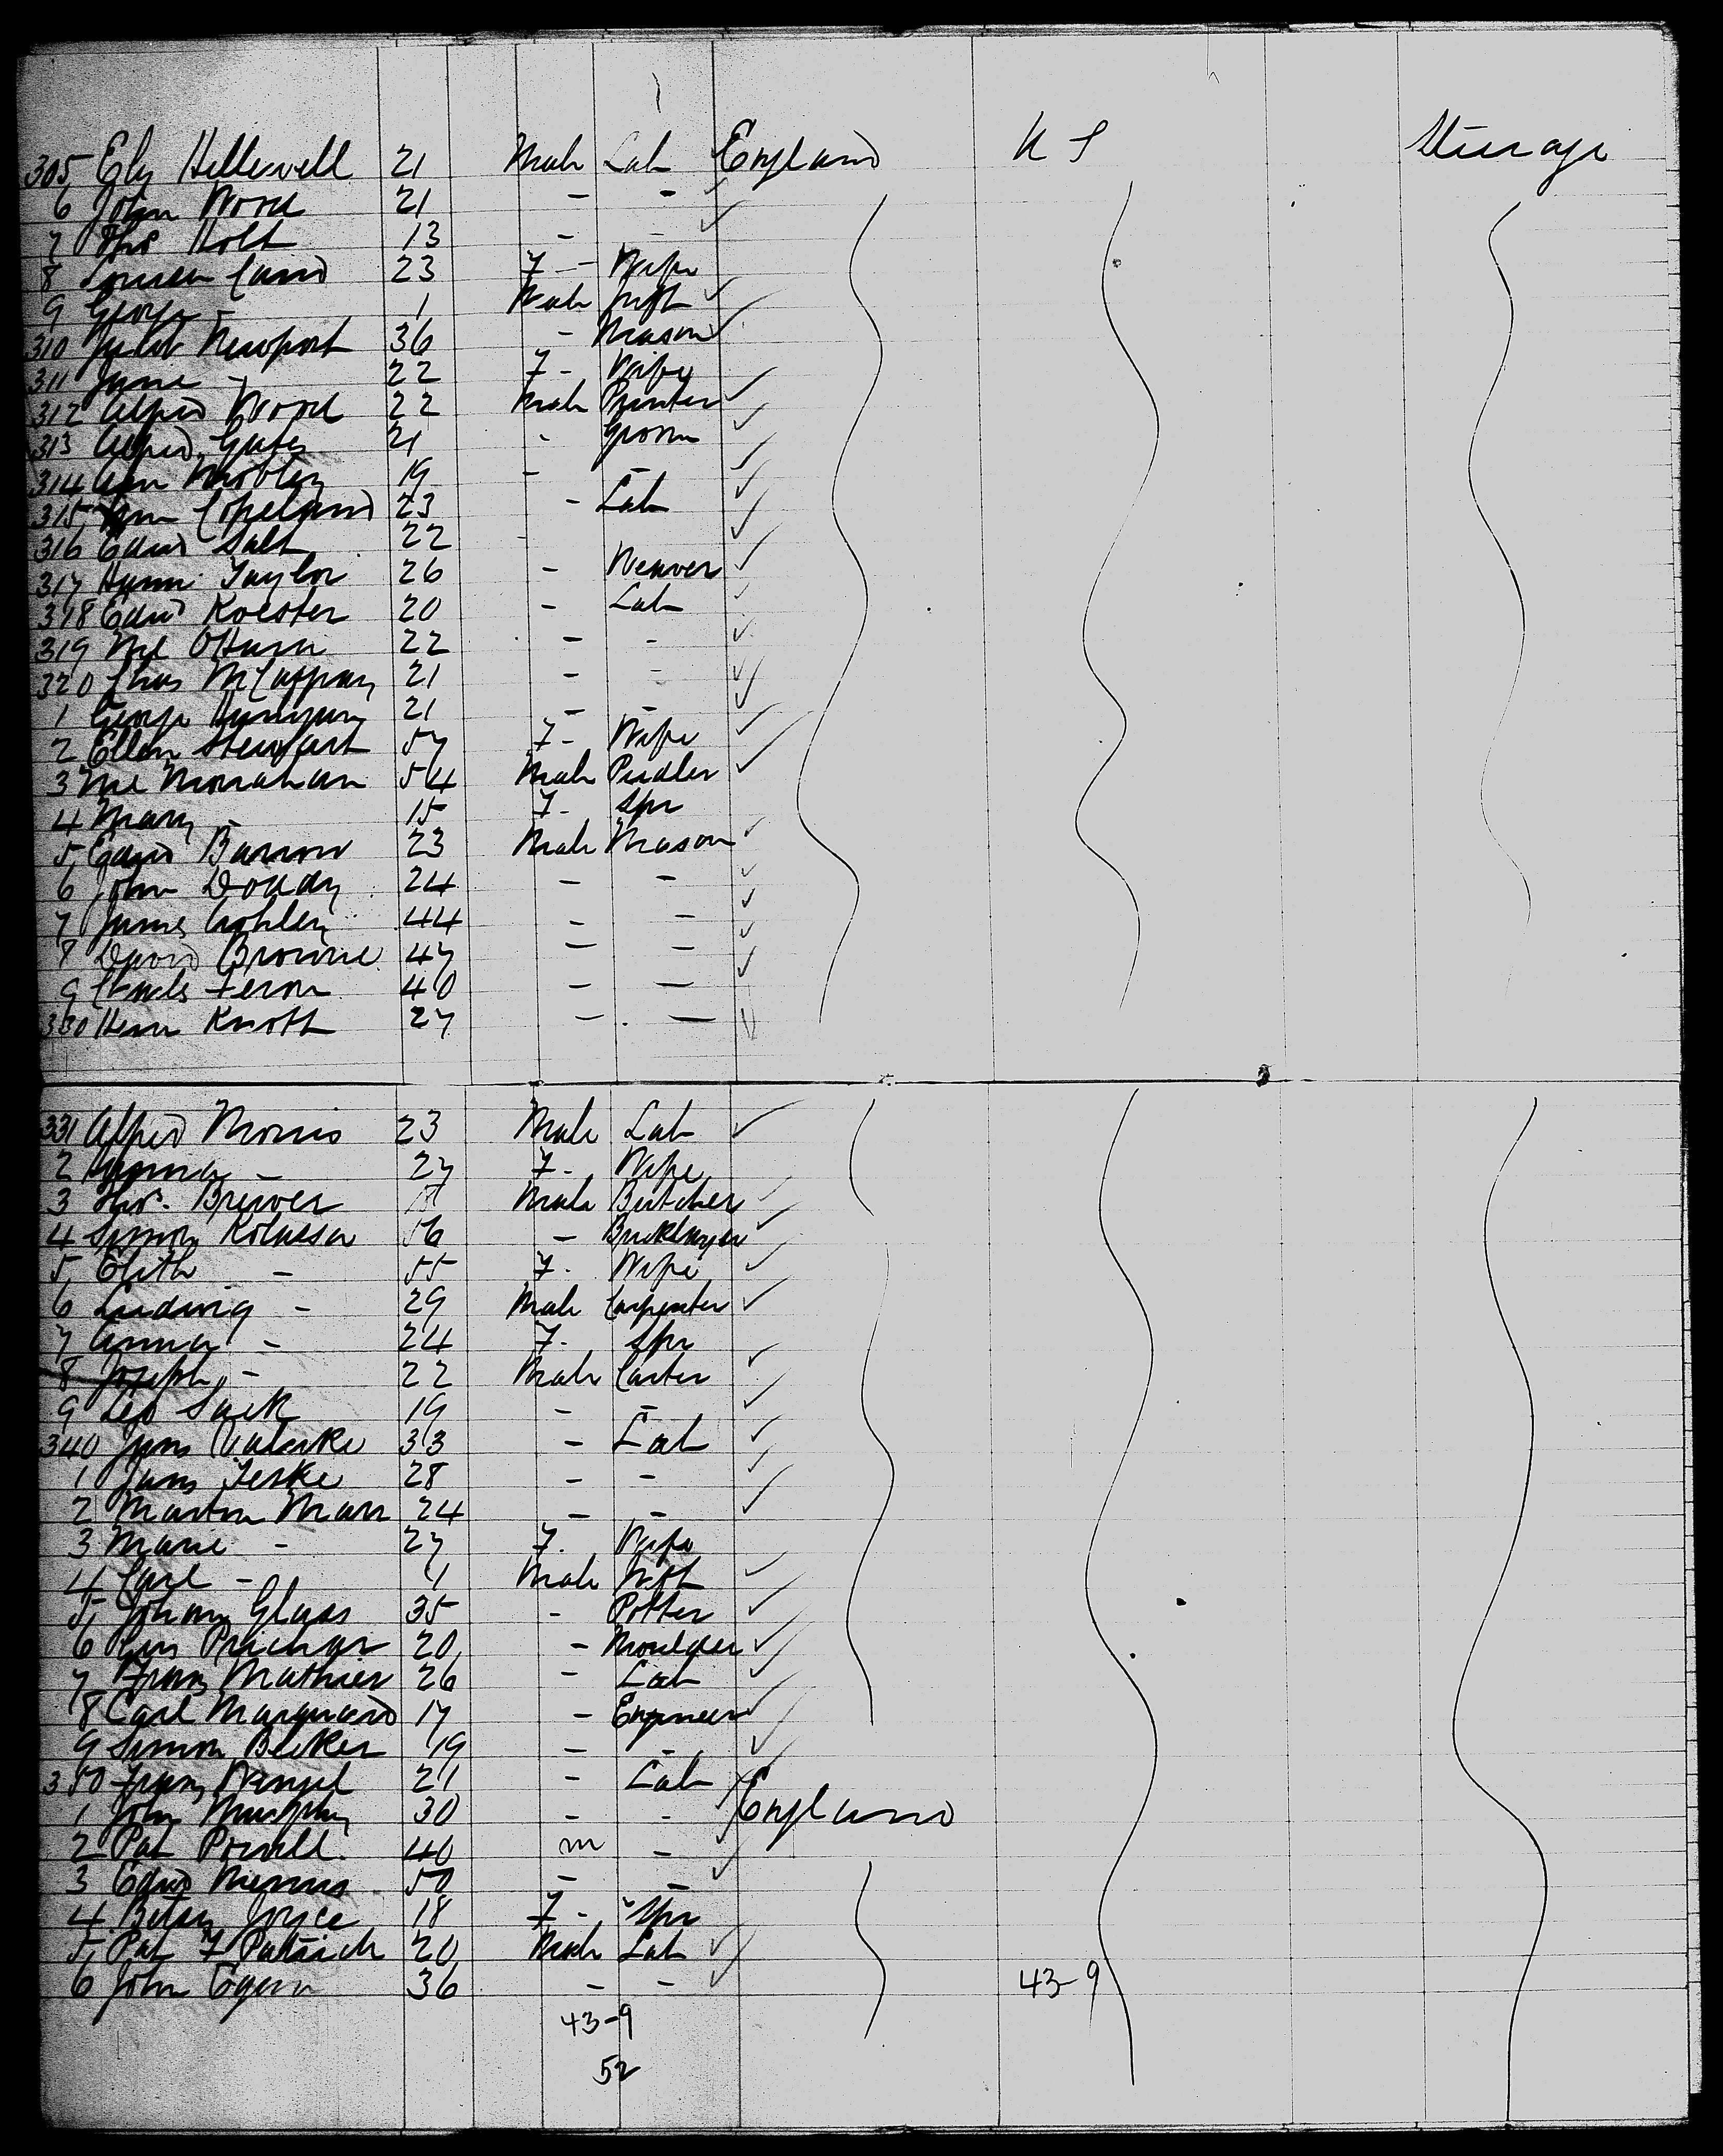 305 Ely Hellewell 21 Male Lab England U S Steerage
6 John Wood 21 - -
7 Thos Holt 13 - -
8 Louisa 23 F - Wife
9 George - 1 Male Inft
310 Jacob Newport 36 - Mason
311 Jane - 22 F - Wife
312 Alfred Wood 22 Male Printer
313 Alfred Gates 21 - Groom
314 Mobley 19 - -
315 Copeland 23 - Lab
316 Edwd Salt 22 -
317 Taylor 26 - Weaver
318 Edwd Koester 20 - Lab
319 Ml OHara 22 - -
320 Chas McCaffray 21 - -
1 George 21 - -
2 Ellen Stewart 57 F - Wife
3 Ml Monahan 54 Male Pedler
4 Mary - 15 F - Spr
5 Edwd Barrow 23 Male Mason
6 John Doddy 24 - -
7 James 44 - -
8 David Browne 47 - -
9 Charls Feron 40 - -
330 Knott 27 - -
331 Alfred Morris 23 Male Lab
2 - 27 F - Wife
3 Thos. Brewer Male Butcher
4 Simon Kolassa 56 - Bricklayer
5 - 55 F - Wife
6 Ludwig - 29 Male Carpenter
7 Anna - 24 F - Spr
8 Joseph - 22 Male Carter
9 Leo Sack 19 - -
340 33 - Lab
1 Teske 28 - -
2 Martin Marx 24 - -
3 Marie - 27 F. Wife
4 Carl - 1 Male Inft
5 Johann Glass 35 - Potter
6 20 - Moulder
7 Franz Mathier 26 - Lab
8 Carl Marquard 17 - Engineer
9 Simon Becker 19 - -
350 Franz Wenzel 21 - Lab
1 John Murphy 30 - - England
2 Pat Powell 40 m -
3 Edwd 50 - -
4 Betsy Joyce 18 F - Spr
5 Pat F Patrick 20 Male Lab
6 John Egan 36 - - 43-9
43-9
52